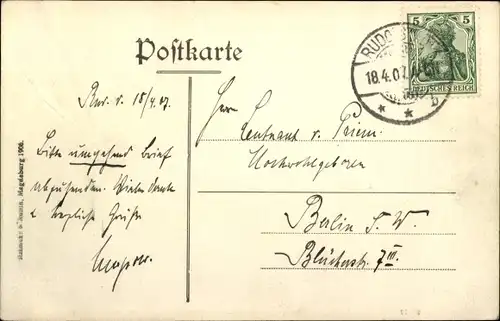 Postkarte
5 5
DEUTSCHES REICH
RUDO
18.4.07
* * b
18/4.07
Bitte umgehend Brief
abzusenden. Vielen Dank
& herzliche Grüße
Herrn
Leutnant v. Priem
Hochwohlgeboren
Berlin S. W.
Blücherstr. 7 III.
Magdeburg 1906.